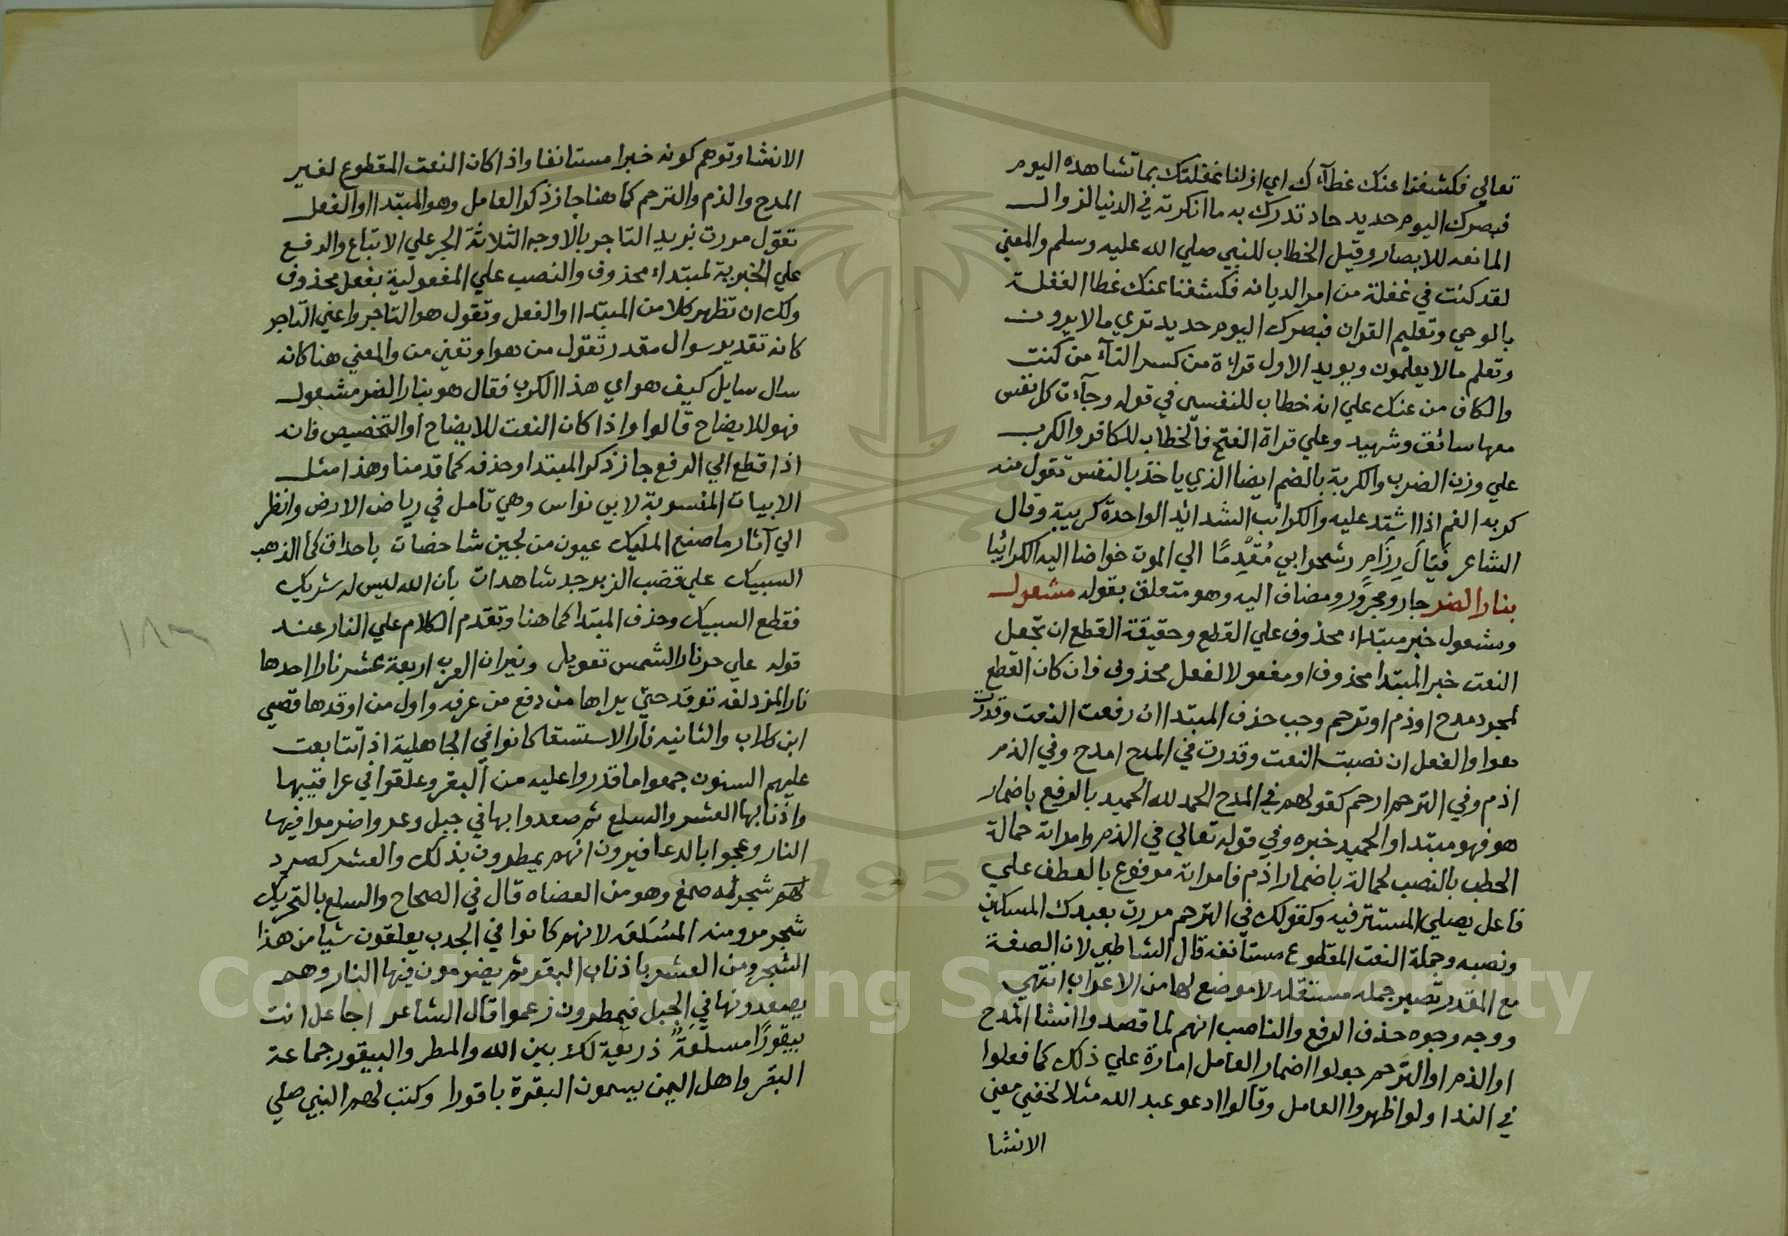 تعالي فكشفنا عنك غطآءك اي ازلنا غفلتك بما تشاهده اليوم
فبصرك اليوم حديد حاد تدرك به ما انكرته في الدنيا لزوال
المانعه للابصار وقيل الخطاب للنبي صلي الله عليه وسلم والمعني
لقد كنت في غفلة من امر الديانه فكشفنا عنك غطا الغفلة
بالوحي وتعليم القران فبصرك اليوم حديد تري ما لا يرون
وتعلم ما لا يعلمون ويويد الاول قراءة من كسر التآء من كنت
والكاف من عنك علي انه خطاب للنفس في قوله وجآءت كل نفس
معها سائق وشهيد وعلي قراة الفتح فالخطاب للكافر والكرب
علي وزن الضرب والكربة بالضم ايضا الذي ياخذ بالنفس تقول منه
كربه الغم اذا اشتد عليه والكرائب الشدائد الواحدة كريبة وقال
الشاعر فَيَالَ رِزَامٍ رشحوا بي مُقَدِّمًا الي الموت خواضا اليه الكرائبا
بنار الضر جار ومجرور ومضاف اليه وهو متعلق بقوله مشعول
ومشعول خبر مبتداء محذوف علي القطع وحقيقة القطع ان تجعل
النعت خبر المبتدا محذوف او مفعولا لفعل محذوف فان كان القطع
لمجرد مدح او ذم او ترحم وجب حذف المبتدا ان رفعت النعت وقدرت
هوا والفعل ان نصبت النعت وقدرت في المدح امدح وفي الذم
اذم وفي الترحم ارحم كقولهم في المدح الحمد لله الحميد بالرفع باضمار
هو فهو مبتدا والحميد خبره وفي قوله تعالي في الذم وامراته حمالة
الحطب بالنصب لحمالة باضمار اذم فامراته مرفوع بالعطف علي
فاعل يصلي المستتر فيه وكقولك في الترحم مررت بعبدك المسكين
ونصبه وجملة النعت المقطوع مستانفه قال الشاطبي لان الصفة
مع المقدر تصير جمله مستقله لا موضع لها من الاعراب انتهي
ووجه وجوه حذف الرفع والناصب انهم لما قصدوا انشا المدح
او الذم او الترحم جعلوا اضمار العامل امارة علي ذلك كما فعلوا
في الندا ولو اظهروا العامل وقالوا ادعو عبد الله مثلا لخفي معني
الانشا
الانشا وتوهم كونه خبرا مستانفا واذا كان النعت المقطوع لغير
المدح والذم والترحم كما هنا جاز ذكر العامل وهو المبتدا او الفعل
تقول مررت بزيد التاجر بالاوجه الثلاثة الجر علي الاتباع والرفع
علي الخبرية لمبتداء محذوف والنصب علي المفعولية بفعل محذوف
ولك ان تظهر كلا من المبتدا والفعل وتقول هو التاجر واعني التاجر
كانه تقدير سوال مقدر تقول من هو او تعني من والمعني هنا كانه
سال سايل كيف هو اي هذا الكرب فقال هو بنار الضر مشعول
فهو للايضاح قالوا واذا كان النعت للايضاح او التخصيص فانه
اذا قطع الي الرفع جاز ذكر المبتدا وحذفه كما قدمنا وهذا مثل
الابيات المنسوبة لابي نواس وهي تامل في رياض الارض وانظر
الي آثار ما صنع المليك عيون من لجين شاخصات باحداق كما الذهب
السبيك علي قضب الزبرجد شاهدات بان الله ليس له شريك
فقطع السبيك وحذف المبتدا كما هنا وتقدم الكلام علي النار عند
قوله علي حر نار الشمس تعويل ونيران العرب اربعة عشر نارا احدها
نار المزدلفه توقد حتي يراها من دفع من عرفه واول من اوقدها قصي
ابن كلاب والثانيه نار الاستسقا كانوا في الجاهلية اذا تتابعت
عليهم السنون جمعوا ما قدروا عليه من البقر وعلقوا في عراقيبها
واذنابها العشر والسلع ثم صعدوا بها في جبل وعر واضرموا فيها
النار وعجوا بالدعا فيرون انهم يمطرون بذلك والعشر كصرد
شجر له صمغ وهو من العضاه قال في الصحاح والسلع بالتحريك
شجر مر ومنه المسَلّعَه لانهم كانوا في الجدب يعلقون شيا من هذا
الشجر ومن العشر باذناب البقر ثم يضرمون فيها النار وهم
يصعدونها في الجبل فيمطرون زعموا قال الشاعر اجاعل انت
بيقورًا مسلعَةً ذريعة لك بين الله والمطر والبيقور جماعة
البقر واهل اليمن يسمون البقرة باقورا وكتب لهم النبي صلي
١٨٣